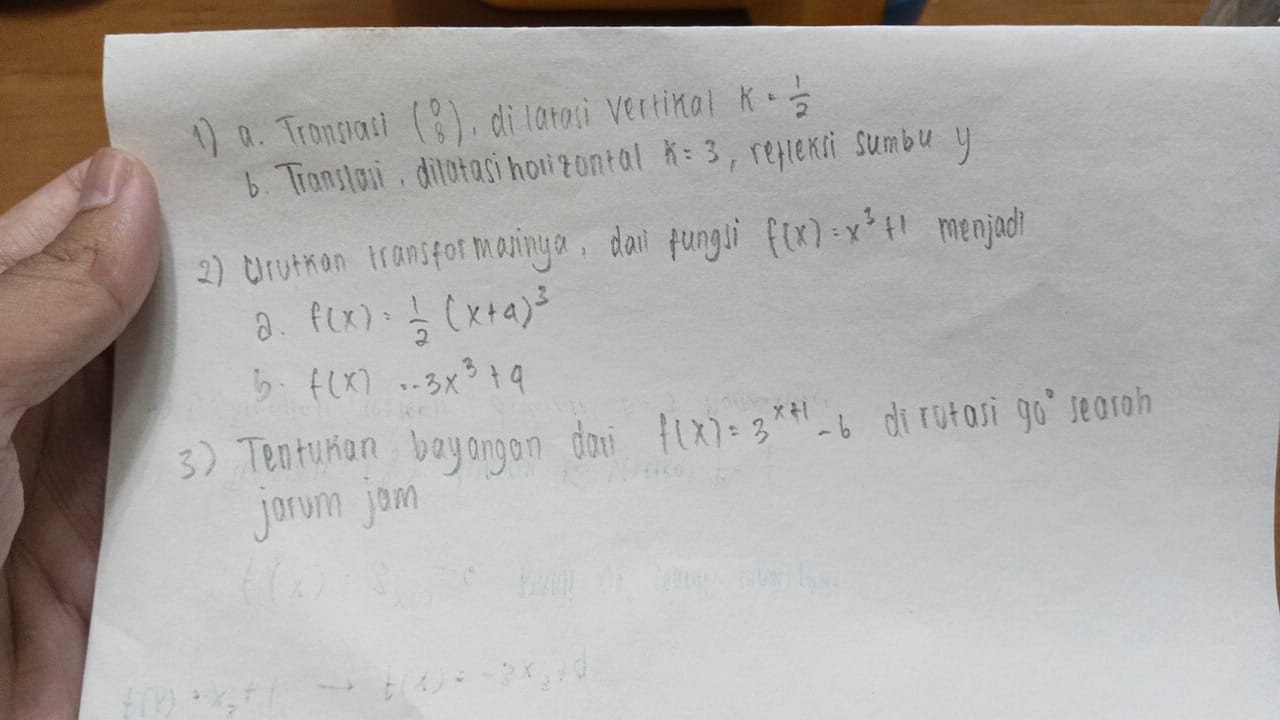 1) a. Translasi (0 8), dilatasi vertikal k = 1/2
b. Translasi, dilatasi horizontal k = 3, refleksi sumbu y
2) Urutkan transformasinya, dari fungsi f(x) = x³ + 1 menjadi
a. f(x) = 1/2 (x+4)³
b. f(x) = -3x³ + 9
3) Tentukan bayangan dari f(x) = 3^(x+1) - 6 dirotasi 90° searah
jarum jam